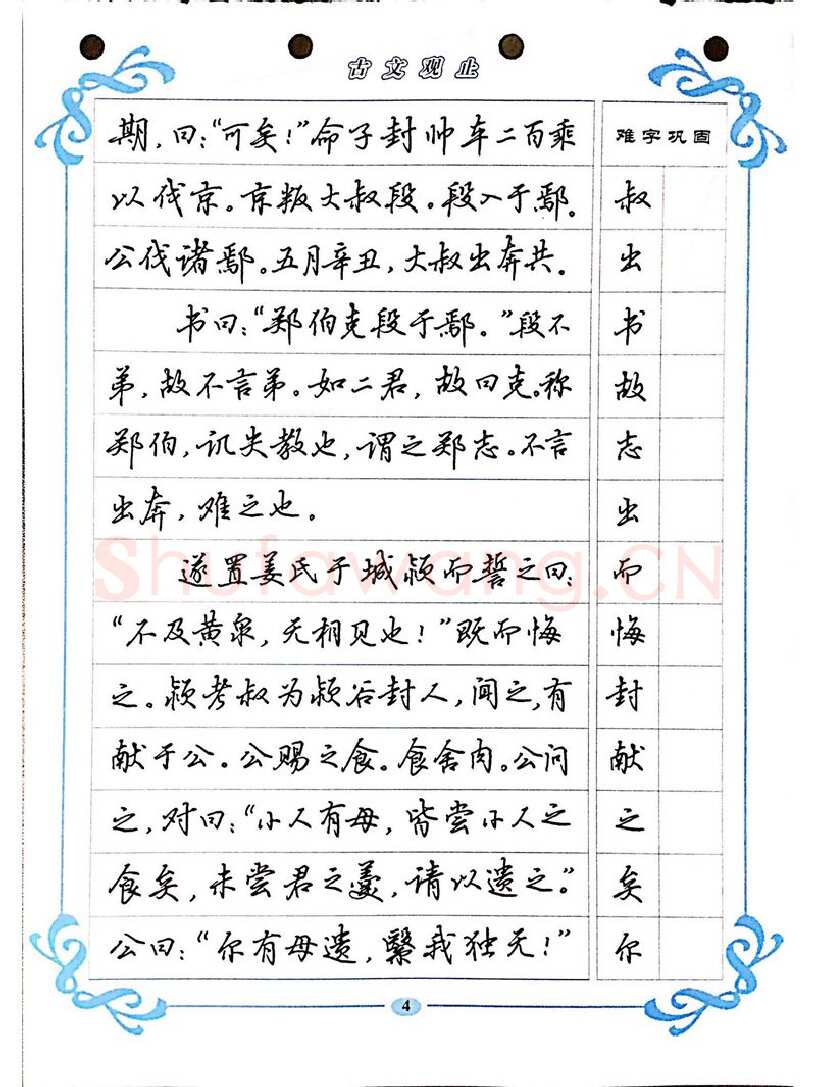 古文观止
期，曰：“可矣！”命子封帅车二百乘
难字巩固
以伐京。京叛大叔段。段入于鄢。
叔
公伐诸鄢。五月辛丑，大叔出奔共。
出
书曰：“郑伯克段于鄢。”段不
书
弟，故不言弟。如二君，故曰克。称
故
郑伯，讥失教也，谓之郑志。不言
志
出奔，难之也。
出
遂置姜氏于城颍而誓之曰：
而
“不及黄泉，无相见也！”既而悔
悔
之。颍考叔为颍谷封人，闻之，有
封
献于公。公赐之食。食舍肉。公问
献
之，对曰：“小人有母，皆尝小人之
之
食矣，未尝君之羹，请以遗之。”
矣
公曰：“尔有母遗，繄我独无！”
尔
4
Shufawang.CN